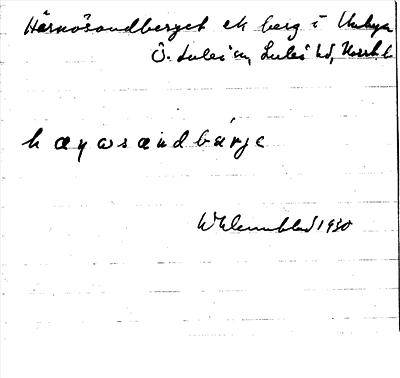 Härnösandberget ett berg i Unbyn
Ö. Luleå sn, Luleå hd, Norrb.
hæṇωsandbárje
W Wennblad 1930